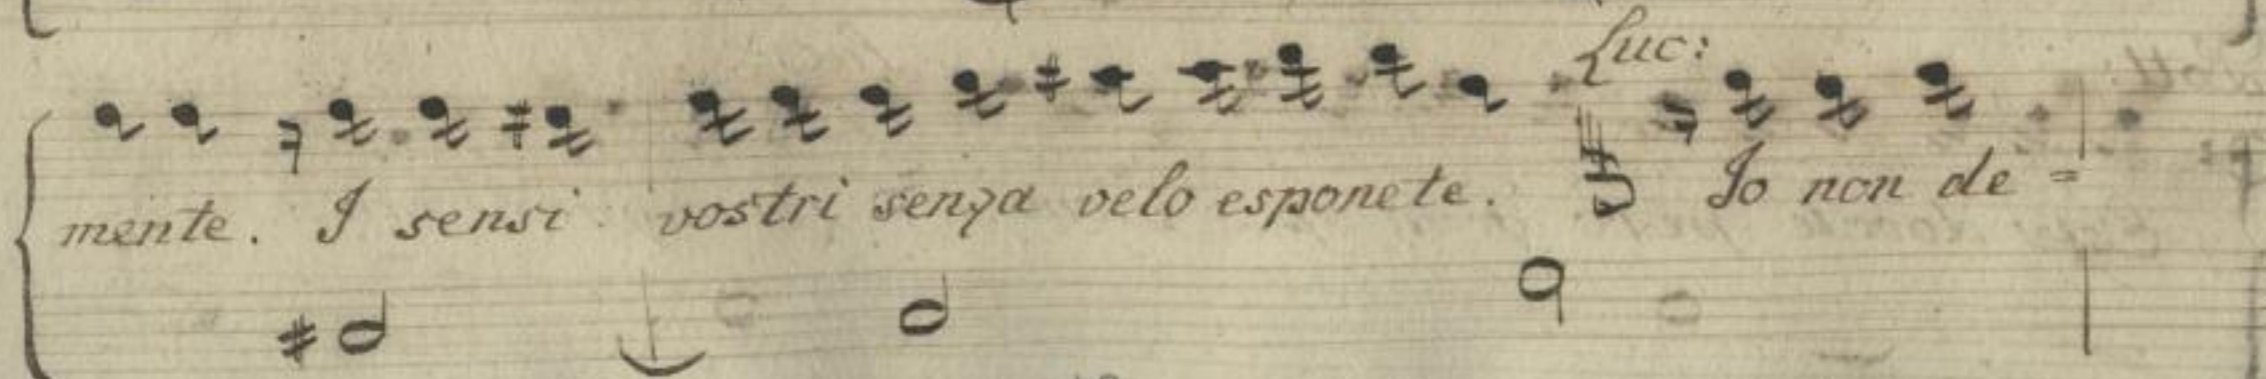 Luc:
mente. I sensi vostri senza velo esponete. Io non de =